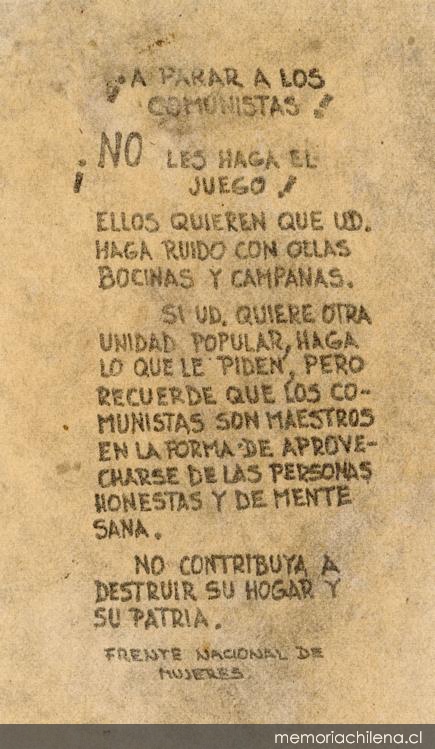 ¡A PARAR A LOS
COMUNISTAS!
¡NO LES HAGA EL
JUEGO!
ELLOS QUIEREN QUE UD.
HAGA RUIDO CON OLLAS
BOCINAS Y CAMPANAS.
SI UD. QUIERE OTRA
UNIDAD POPULAR, HAGA
LO QUE LE PIDEN, PERO
RECUERDE QUE LOS CO-
MUNISTAS SON MAESTROS
EN LA FORMA DE APROVE-
CHARSE DE LAS PERSONAS
HONESTAS Y DE MENTE
SANA.
NO CONTRIBUYA A
DESTRUIR SU HOGAR Y
SU PATRIA.
FRENTE NACIONAL DE
MUJERES
memoriachilena.cl